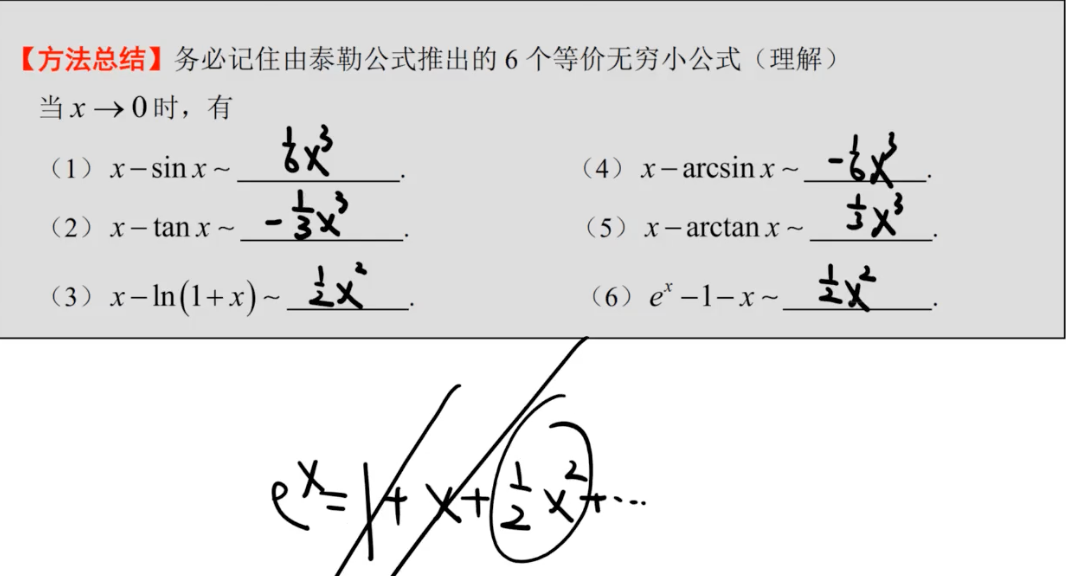 【方法总结】务必记住由泰勒公式推出的 6 个等价无穷小公式（理解）
当 x → 0 时，有
（1） x − sin x ~ 1/6 x³ .
（4） x − arcsin x ~ −1/6 x³ .
（2） x − tan x ~ −1/3 x³ .
（5） x − arctan x ~ 1/3 x³ .
（3） x − ln(1 + x) ~ 1/2 x² .
（6） eˣ − 1 − x ~ 1/2 x² .
eˣ = 1 + x + 1/2 x² + ...